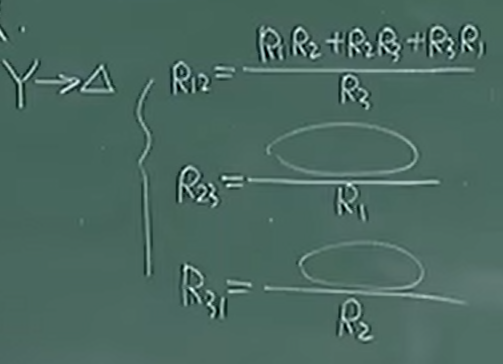 Y→△
R₁₂ = (R₁R₂ + R₂R₃ + R₃R₁) / R₃
R₂₃ = ⬭ / R₁
R₃₁ = ⬭ / R₂